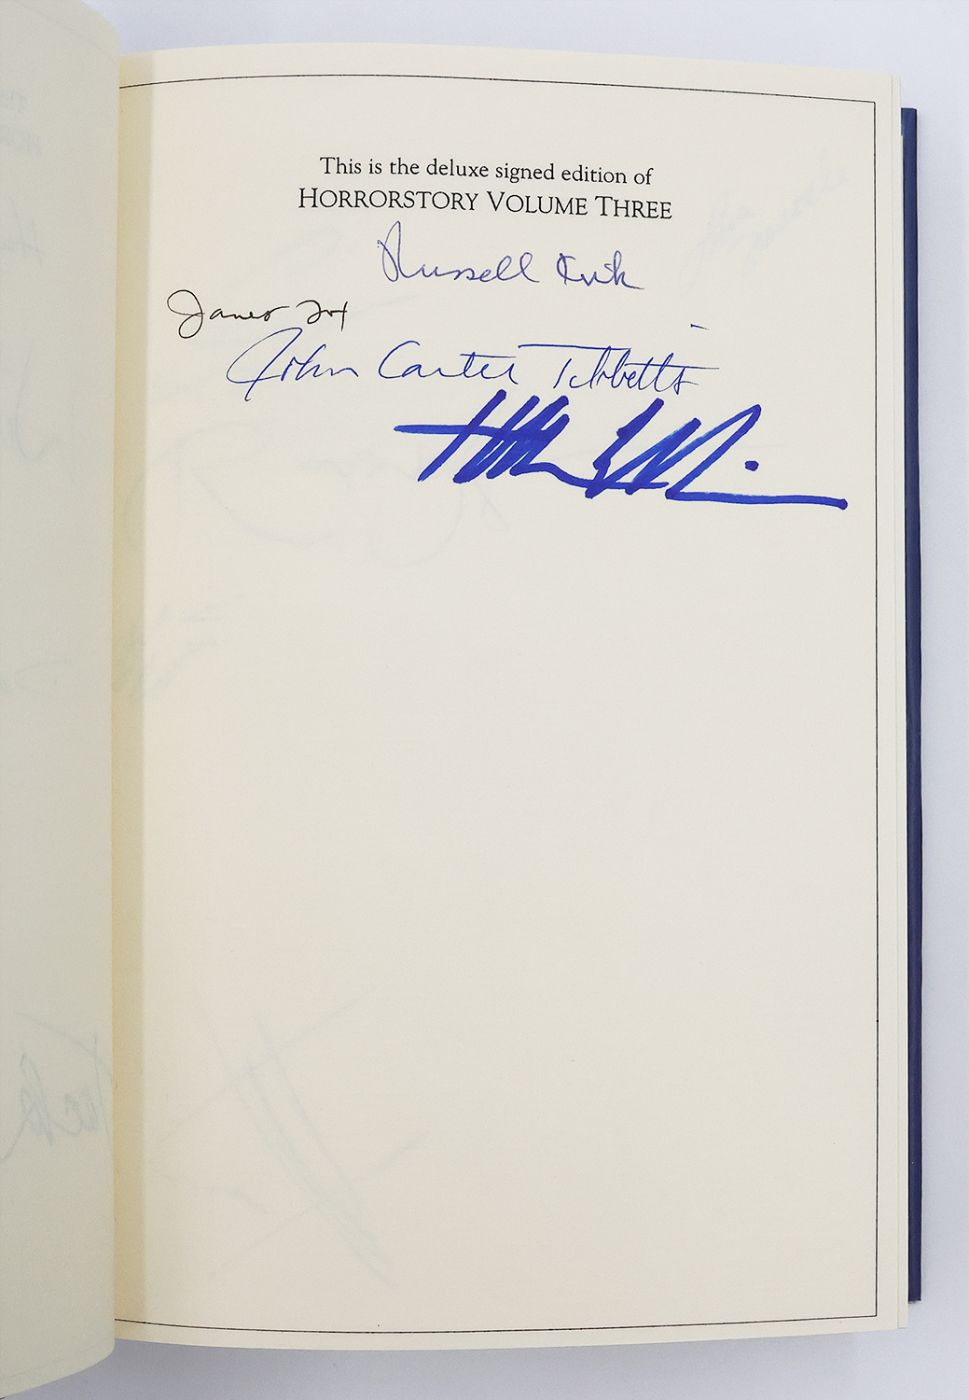 This is the deluxe signed edition of
HORRORSTORY VOLUME THREE
Russell Kirk
Janet Fox
John Carter Tibbetts